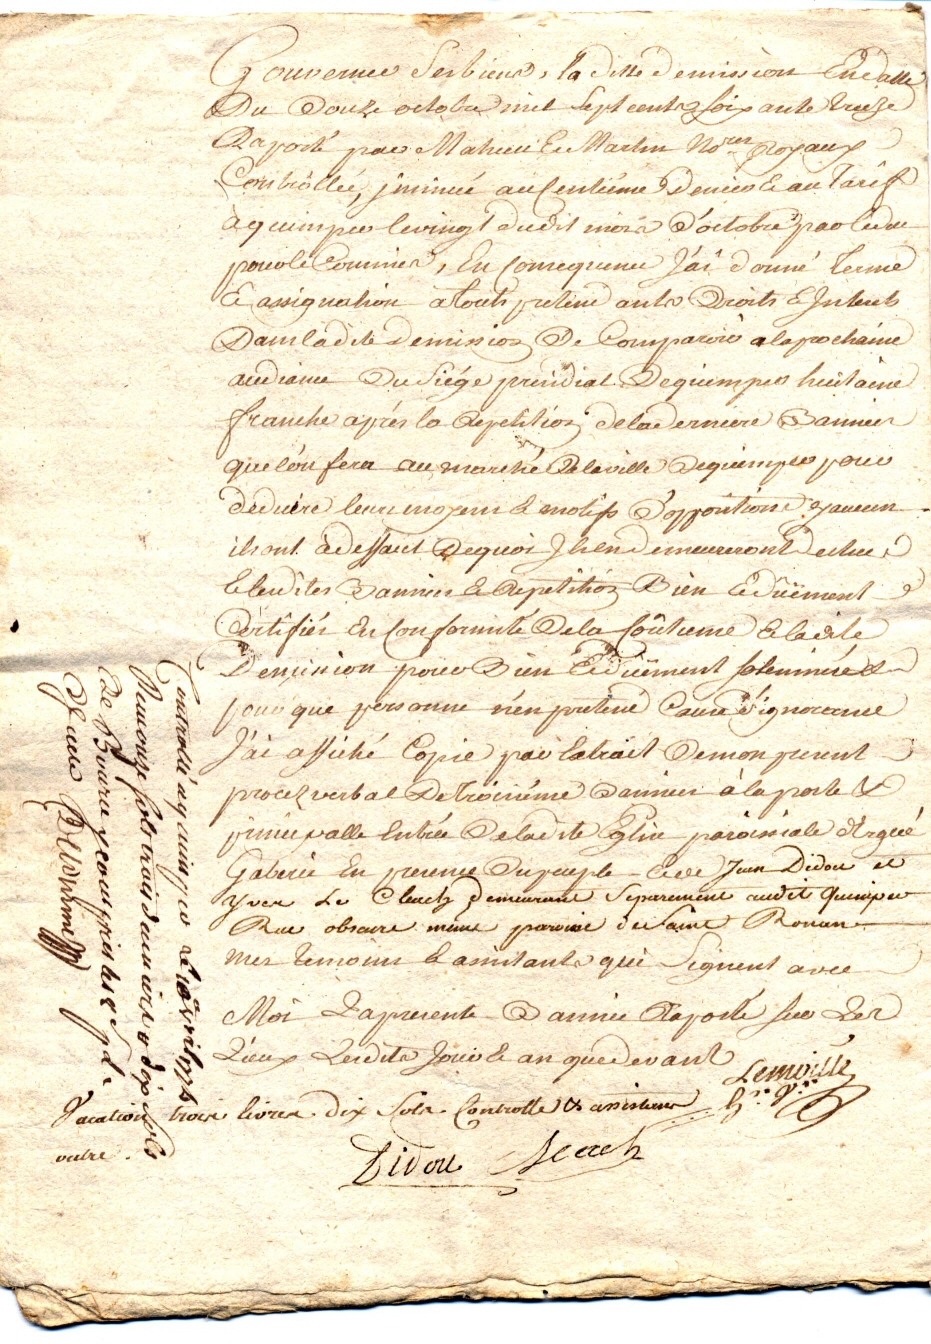 Gouverner ses biens, la ditte demission En datte
Du Douze octobre mil sept cents soixante treize
Raporté par Mahieu Et Martin No.res Royaux
Controllée, jnsinué au Centiéme Denier & au Tarif
a quimper le vingt dudit mois d'octobre par
pour le Commis, En consequence J'ai donné Terme
Et assignation a touts prétendants Droits & Interets
Dans ladite demission De Comparoir a la prochaine
audiance Du Siége presidial De quimper huitaine
franche aprés la Repetition de la derniére Bannie
que l'on fera au marché De la ville De quimper pour
deduire leurs moyens & motifs D'oppositions sy aucun
ils ont à deffaut De quoi Ils en demeureront dechus
& lesdites Bannies & Repetition Bien & Dûëment
Certifiés En Conformité De la Coûtume & ladite
Demission pour Bien & Dûëment solemnisée &
pour que personne n'en prétend Cause d'ignorance
J'ai affiché Copie par Extrait De mon present
procez verbal De troisiéme Bannie à la porte &
principalle Entrée De ladite Eglise paroissiale d'Ergué
Gaberic En presence Du peuple & de Jean Didou et
Yves Le Cleach demeurant Separement audit Quimper
Rue obscure même paroisse de Saint Ronan
mes temoins & assistants qui Signent avec
Moi La presente Bannie Raporté sur Les
Lieux Lesdits Jour & an que devant
Lemoille
Vacation trois livres dix Sols Controlle & assistans
outre.
Didou Cleach
Controllé a quimper le avril 1774
Renvoy Sols trois deniers
De Bannie y compris les